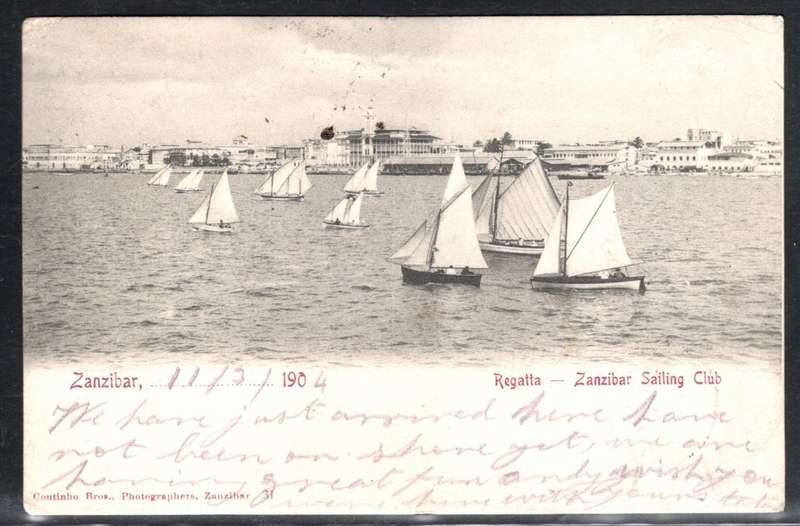 Zanzibar, 11/3/ 1904
Regatta — Zanzibar Sailing Club
We have just arrived here have
not been on shore yet, we are
having great fun and wish you
were here with yours
Coutinho Bros., Photographers, Zanzibar 31